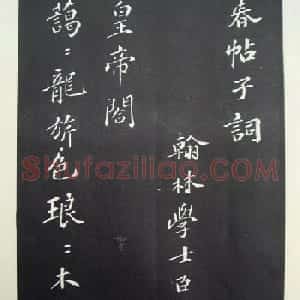 春帖子詞
翰林學士臣
皇帝閣
藹〻龍旂色琅〻木
Shufaziliao.COM